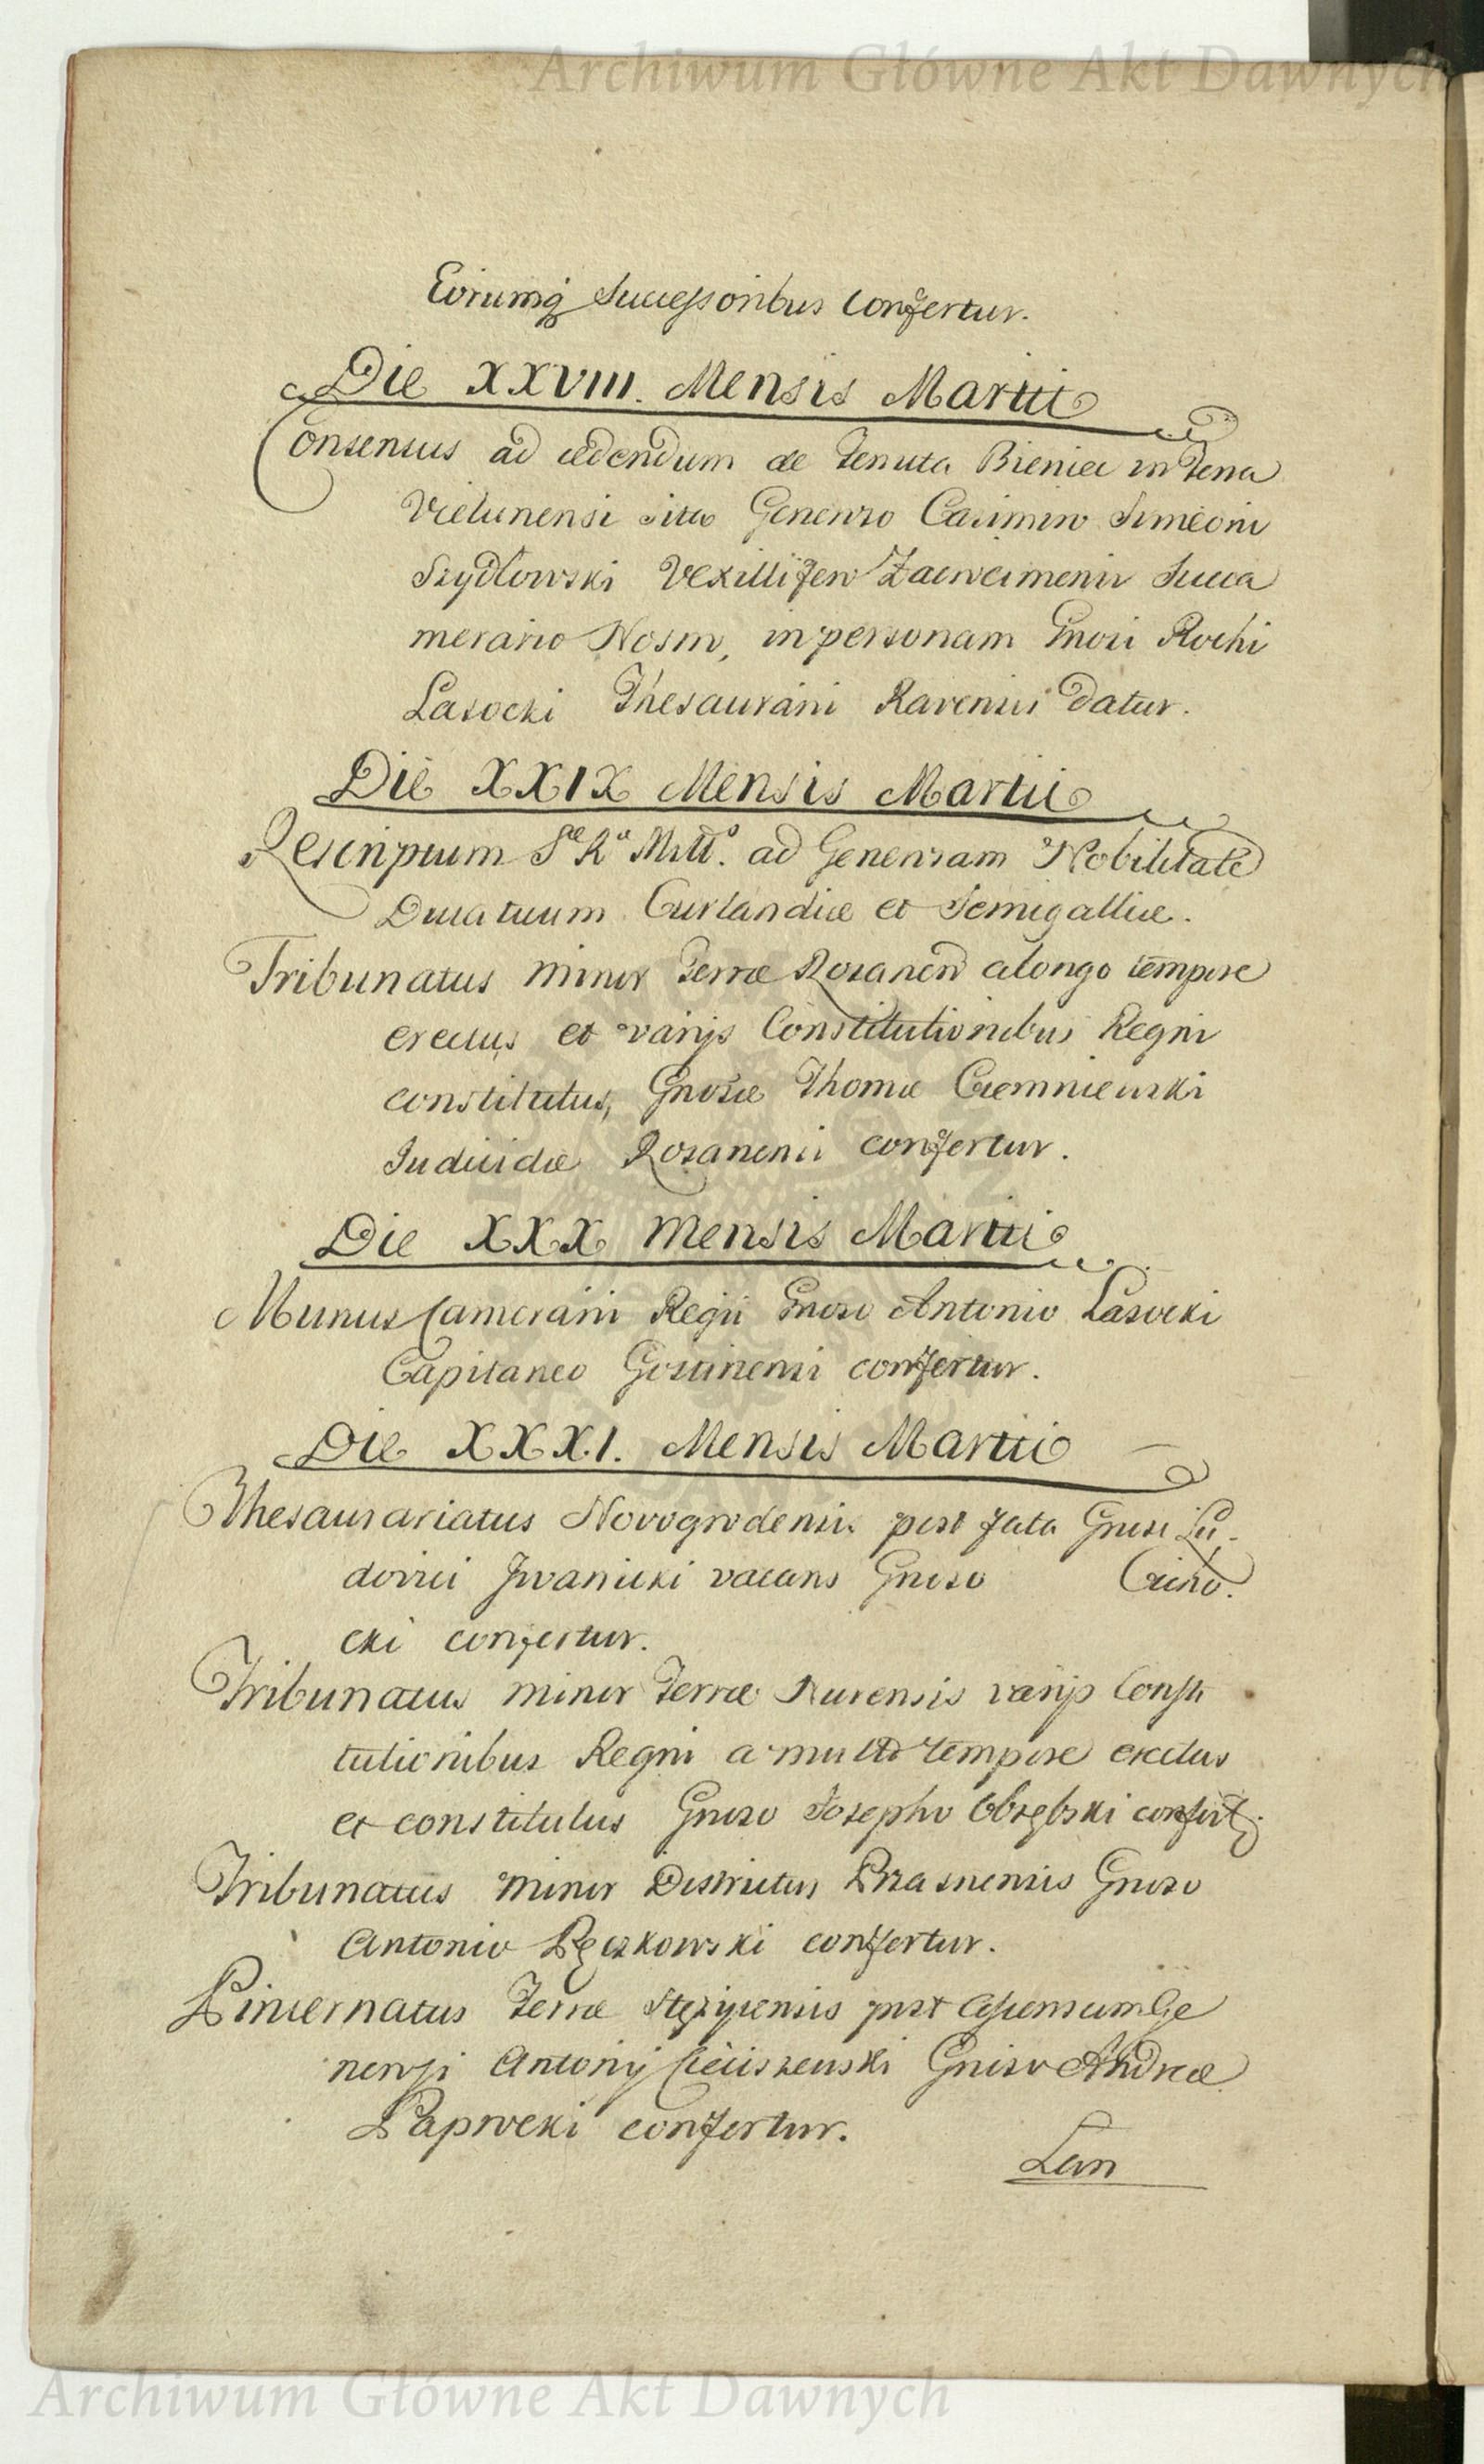 Archiwum Główne Akt Dawnych
Eorumq; Successoribus Confertur.
Die XXVIII. Mensis Martii
Consensus ad cedendum de Tenuta Bieniec in Terra
Vielunensi sita Generoso Casimiro Simeoni
Szydłowski Vexillifero Zacroeimensi Succa
merario Nosro, in personam Gnosi Rochi
Lasocki Thesaurarii Ravensis Datur.
Die XXIX Mensis Martii
Rescriptum Sæ Ræ Mttis. ad Generosam Nobilitatē
Ducatuum Curlandiæ et Semigalliæ.
Tribunatus minor Terræ Rozanen̄ a longo tempore
erectus et varijs Constitutionibus Regni
constitutus, Gnoso Thomæ Ciemniewski
Judicidæ Rozanensi confertur.
Die XXX Mensis Martii
Munus Camerarii Regii Gnoso Antonio Lasocki
Capitaneo Gostinensi confertur.
Die XXXI. Mensis Martii
Thesaurariatus Novogrodensis post fata Gnosi Lu-
dovici Jwanicki vacans Gnoso
cki confertur.
Tribunatus minor Terræ Nurensis varijs Consti
tutionibus Regni a multo tempore erectus
et constitutus Gnoso Josepho Obrębski confert;
Tribunatus minor Districtus Prasnensis Gnoso
Antonio Pęczkowski confertur.
Pincernatus Terræ Stężycensis post Ascensum Ge
nerosi Antonij Cieciszewski Gnoso Andreæ
Paprocki confertur.
Archiwum Główne Akt Dawnych